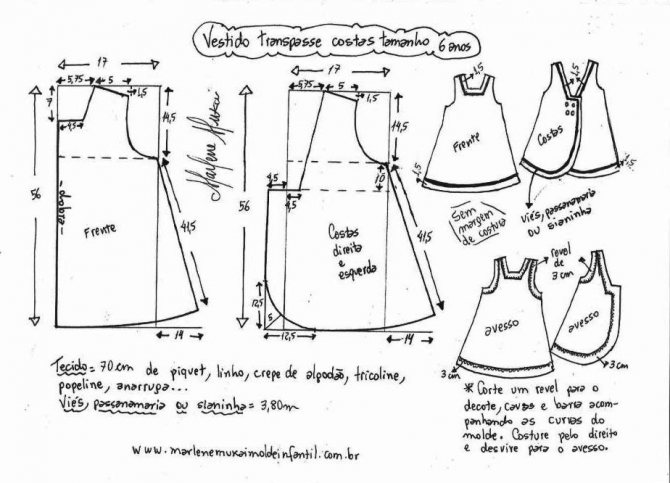 Vestido transpasse costas tamanho 6 anos
17
5,75
5
1,5
7
4,5
14,5
56
esgaço
Frente
41,5
14
Marlene Mukai
17
5,75
5
1,5
14,5
10
4,5
4,5
56
Costas
direita
e
esquerda
41,5
12,5
5
12,5
14
1,5
Frente
1,5
1,5
Costas
1,5
Viés, passanamaria
ou sianinha
Sem
margem
de costura
revel
de
3 cm
avesso
3 cm
avesso
3 cm
Tecido = 70 cm de piquet, linho, crepe de algodão, tricoline,
popeline, anarruga...
Viés, passanamaria ou sianinha = 3,80m
* Corte um revel para o
decote, cavas e barra acom-
panhando as curvas do
molde. Costure pelo direito
e desvire para o avesso.
www.marlenemukaimoldeinfantil.com.br